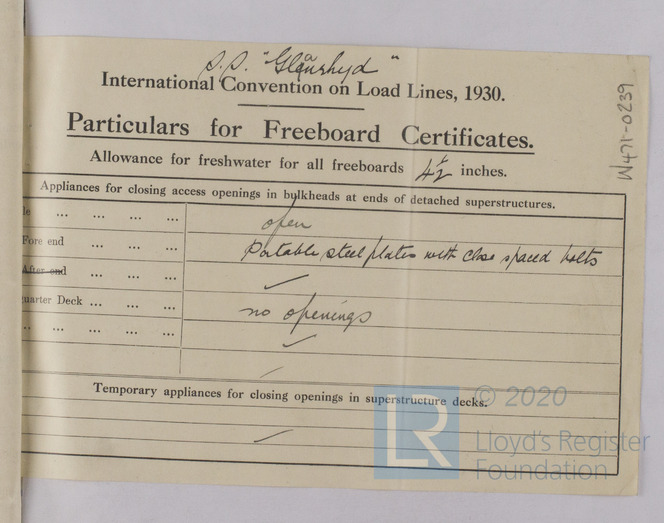 S.S. "Glanrhyd"
International Convention on Load Lines, 1930.
Particulars for Freeboard Certificates.
Allowance for freshwater for all freeboards 4½ inches.
Appliances for closing access openings in bulkheads at ends of detached superstructures.
le ... ... ... ... open
Fore end ... ... ... Portable steel plates with close spaced bolts
After end ... ... ... ✓
quarter Deck ... ... ... no openings
.. ... ... ... ... ✓
Temporary appliances for closing openings in superstructure decks.
✓
W471-0239
© 2020
LR
Lloyd's Register
Foundation